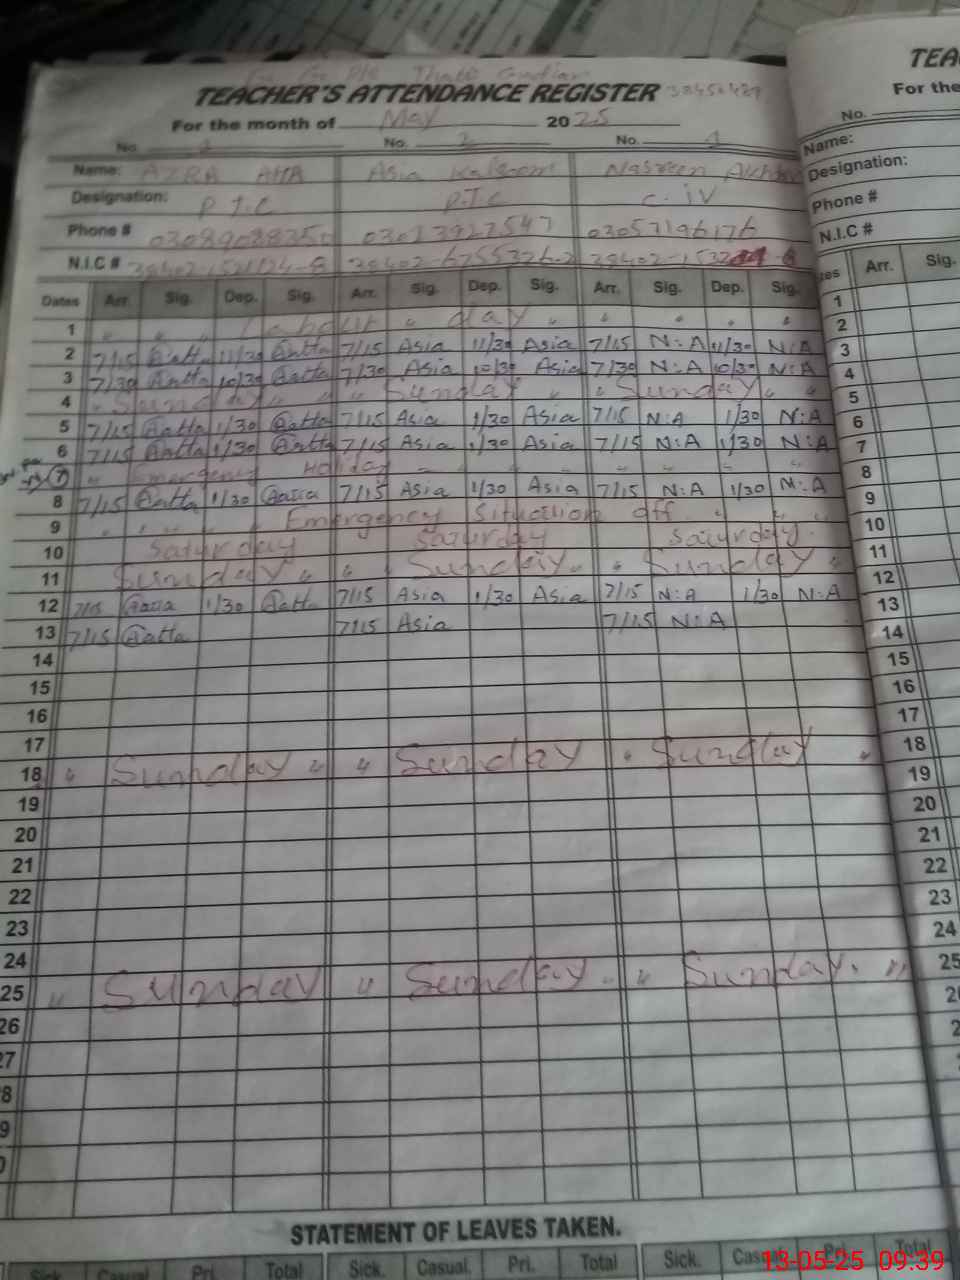 TEACHER'S ATTENDANCE REGISTER
For the month of May 2025
No. No. 2 No. 1
Name: AZRA ATTA Asia Kalsoom Nasreen Akhtar
Designation: P.T.C P.T.C C. iV
Phone # 03089088350 03013927547 03057196176
N.I.C #
Dates Arr. Sig. Dep. Sig. Arr. Sig. Dep. Sig. Arr. Sig. Dep. Sig.
1 " " " Labour " day " " " " "
2 7/15 Aatta 11/30 Aatta 7/15 Asia 11/30 Asia 7/15 N:A 11/30 N:A
3 7/30 Aatta 10/30 Aatta 7/30 Asia 10/30 Asia 7/30 N:A 10/30 N:A
4 " Sunday " " " Sunday " " Sunday " "
5 7/15 Aatta 1/30 Aatta 7/15 Asia 1/30 Asia 7/15 N:A 1/30 N:A
6 7/15 Aatta 1/30 Aatta 7/15 Asia 1/30 Asia 7/15 N:A 1/30 N:A
7 " Emergency Holiday " " " " " "
8 7/15 Aatta 1/30 7/15 Asia 1/30 Asia 7/15 N:A 1/30 N:A
9 " " " " Emergency Situation off " " "
10 Saturday Saturday Saturday.
11 Sunday " " Sunday " " Sunday "
12 7/15 1/30 Aatta 7/15 Asia 1/30 Asia 7/15 N:A 1/30 N:A
13 7/15 Aatta 7/15 Asia 7/15 N:A
14
15
16
17
18 " Sunday " " Sunday " Sunday "
19
20
21
22
23
24
25 " Sunday " Sunday. " Sunday. "
26
27
8
9
0
STATEMENT OF LEAVES TAKEN.
Sick. Casual. Pri. Total Sick. Casual. Pri. Total Sick. Casual. Pri. Total
TEA
For the
No.
Name:
Designation:
Phone #
N.I.C #
tes Arr. Sig.
1
2
3
4
5
6
7
8
9
10
11
12
13
14
15
16
17
18
19
20
21
22
23
24
25
13-05-25 09:39